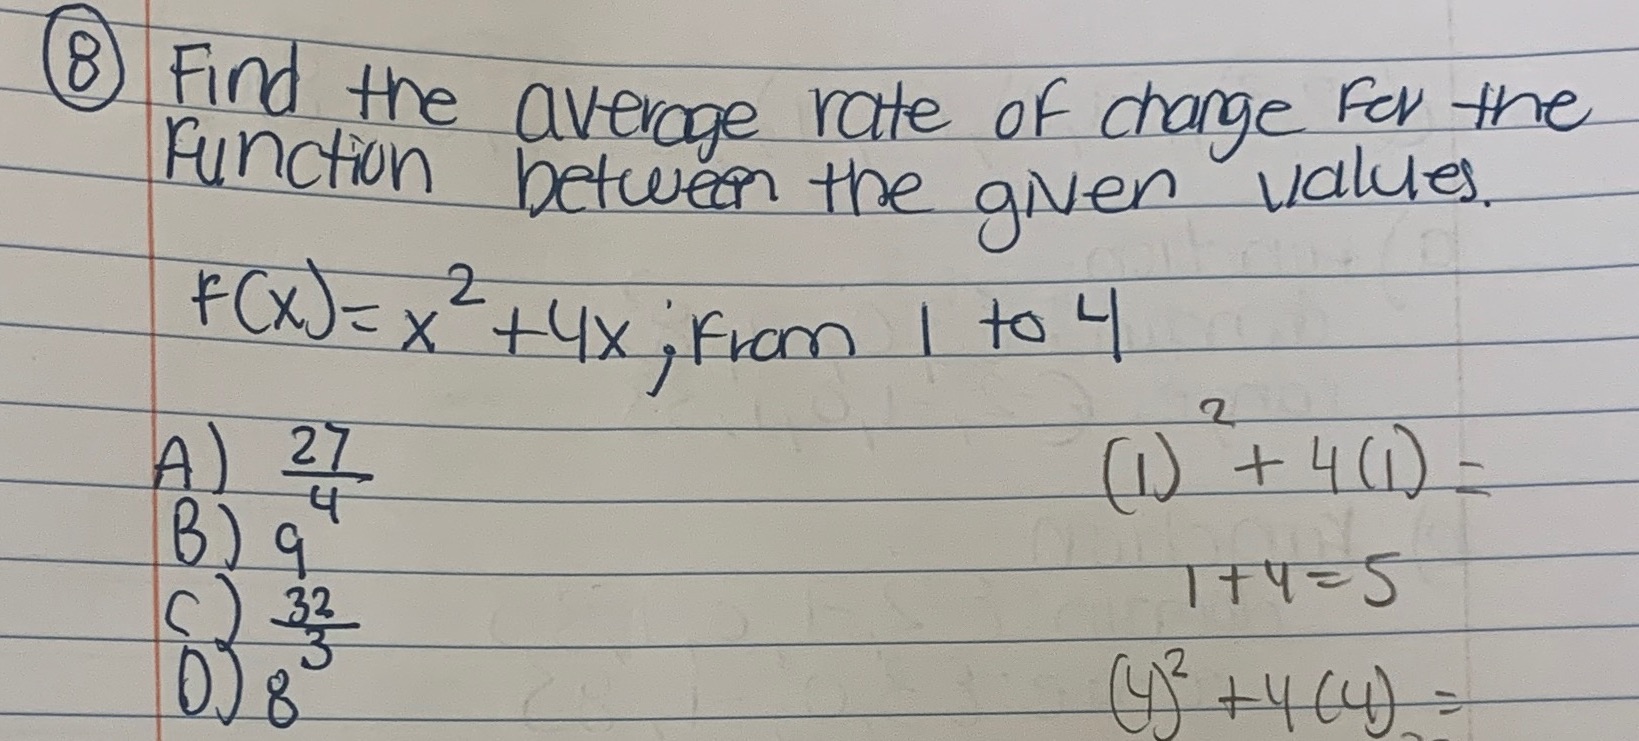 8 Find the average rate of change for the
function between the given values.
F(x) = x² + 4x ; from 1 to 4
A) 27/4
B) 9
C) 32/3
D) 8
(1)² + 4(1) =
1 + 4 = 5
(4)² + 4(4) =